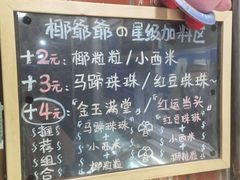 椰爷爷の星级加料区
+2元: 椰粒粒/小西米
+3元: 马蹄珠珠/红豆珠珠~
+4元: "金玉满堂"/"红运当头"
推荐组合
马蹄珠珠
+
小西米
+
椰粒粒
红豆珠珠
+
小西米
+
椰粒粒